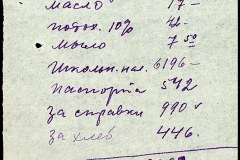 масло 17 —
потол. 10% 42 —
мыло 7 50
Школьн. нал. 6196 —
Паспорта 542
За справки 990
За хлеб 446.